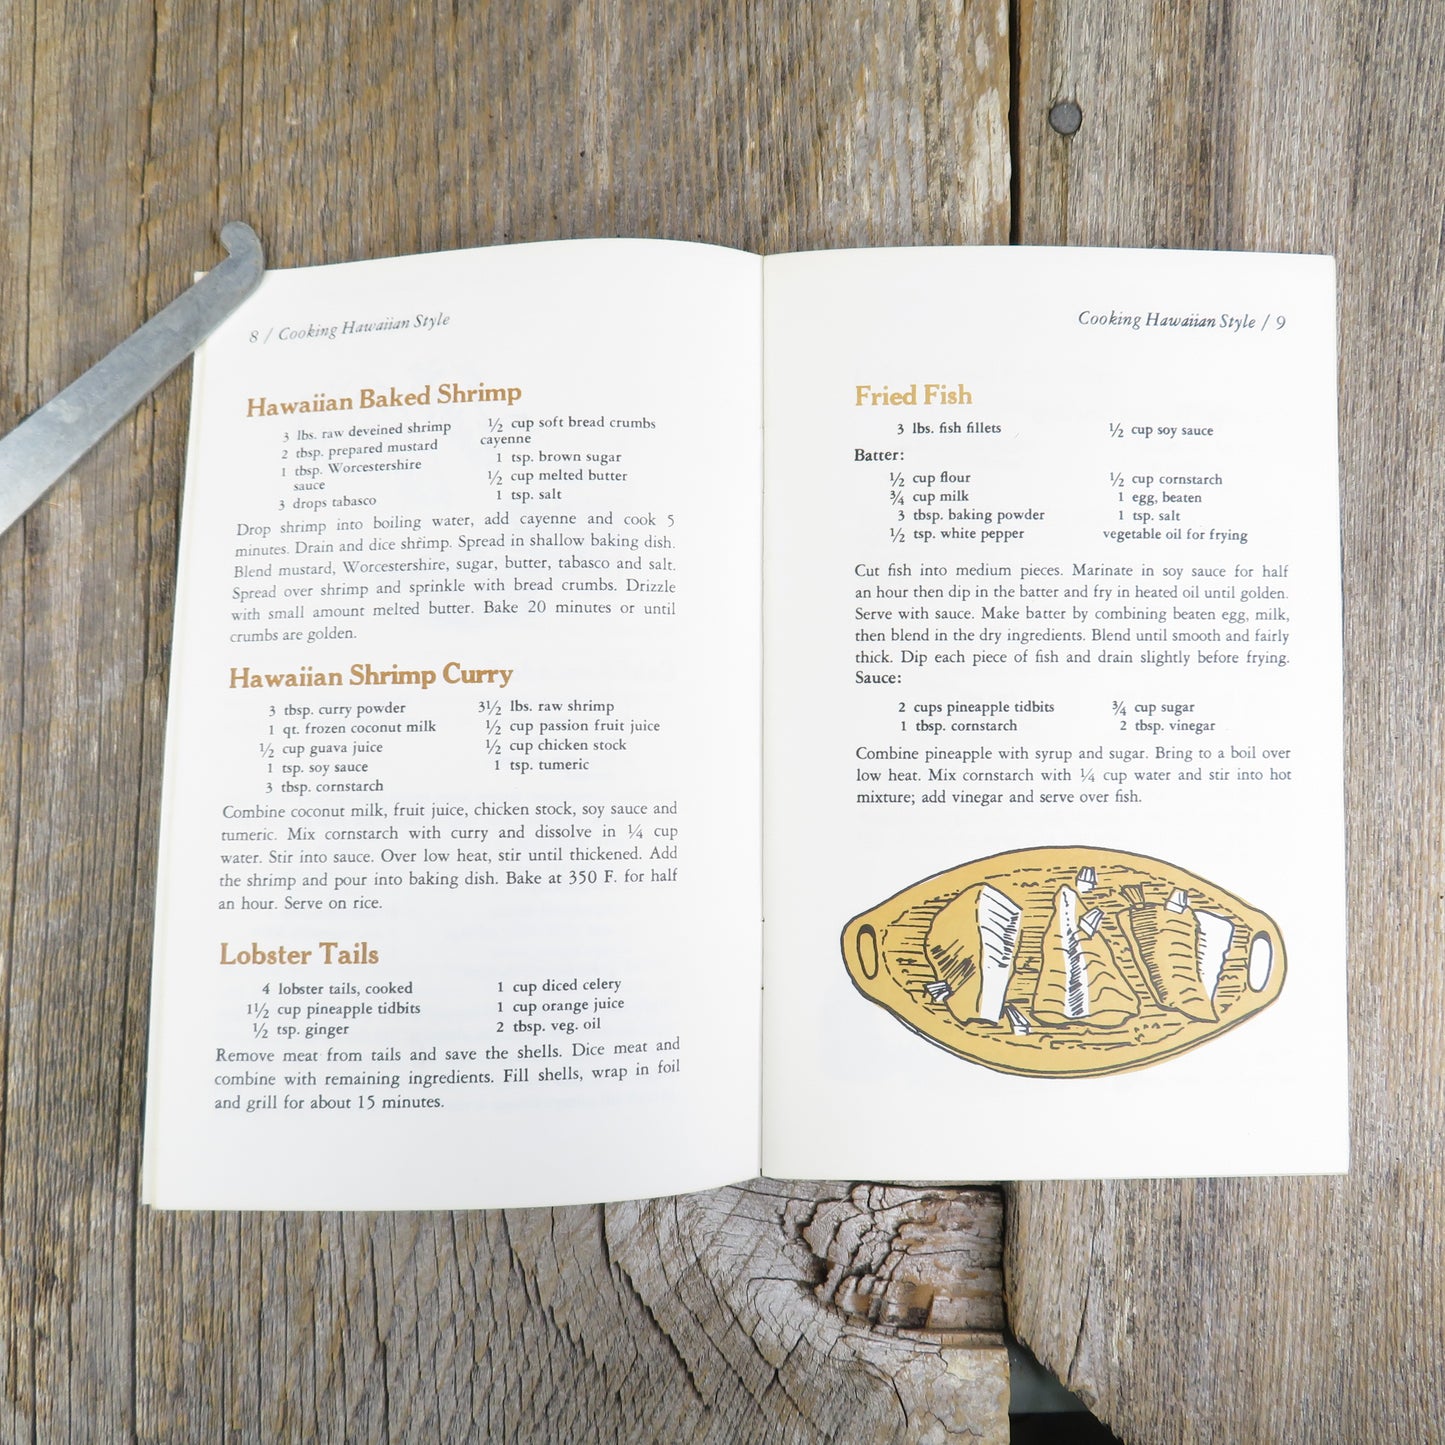 8 / Cooking Hawaiian Style
Hawaiian Baked Shrimp
3 lbs. raw deveined shrimp
2 tbsp. prepared mustard
1 tbsp. Worcestershire
sauce
3 drops tabasco
½ cup soft bread crumbs
cayenne
1 tsp. brown sugar
½ cup melted butter
1 tsp. salt
Drop shrimp into boiling water, add cayenne and cook 5
minutes. Drain and dice shrimp. Spread in shallow baking dish.
Blend mustard, Worcestershire, sugar, butter, tabasco and salt.
Spread over shrimp and sprinkle with bread crumbs. Drizzle
with small amount melted butter. Bake 20 minutes or until
crumbs are golden.
Hawaiian Shrimp Curry
3 tbsp. curry powder
1 qt. frozen coconut milk
½ cup guava juice
1 tsp. soy sauce
3 tbsp. cornstarch
3½ lbs. raw shrimp
½ cup passion fruit juice
½ cup chicken stock
1 tsp. tumeric
Combine coconut milk, fruit juice, chicken stock, soy sauce and
tumeric. Mix cornstarch with curry and dissolve in ¼ cup
water. Stir into sauce. Over low heat, stir until thickened. Add
the shrimp and pour into baking dish. Bake at 350 F. for half
an hour. Serve on rice.
Lobster Tails
4 lobster tails, cooked
1½ cup pineapple tidbits
½ tsp. ginger
1 cup diced celery
1 cup orange juice
2 tbsp. veg. oil
Remove meat from tails and save the shells. Dice meat and
combine with remaining ingredients. Fill shells, wrap in foil
and grill for about 15 minutes.
Cooking Hawaiian Style / 9
Fried Fish
3 lbs. fish fillets
½ cup soy sauce
Batter:
½ cup flour
¾ cup milk
3 tbsp. baking powder
½ tsp. white pepper
½ cup cornstarch
1 egg, beaten
1 tsp. salt
vegetable oil for frying
Cut fish into medium pieces. Marinate in soy sauce for half
an hour then dip in the batter and fry in heated oil until golden.
Serve with sauce. Make batter by combining beaten egg, milk,
then blend in the dry ingredients. Blend until smooth and fairly
thick. Dip each piece of fish and drain slightly before frying.
Sauce:
2 cups pineapple tidbits
1 tbsp. cornstarch
¾ cup sugar
2 tbsp. vinegar
Combine pineapple with syrup and sugar. Bring to a boil over
low heat. Mix cornstarch with ¼ cup water and stir into hot
mixture; add vinegar and serve over fish.